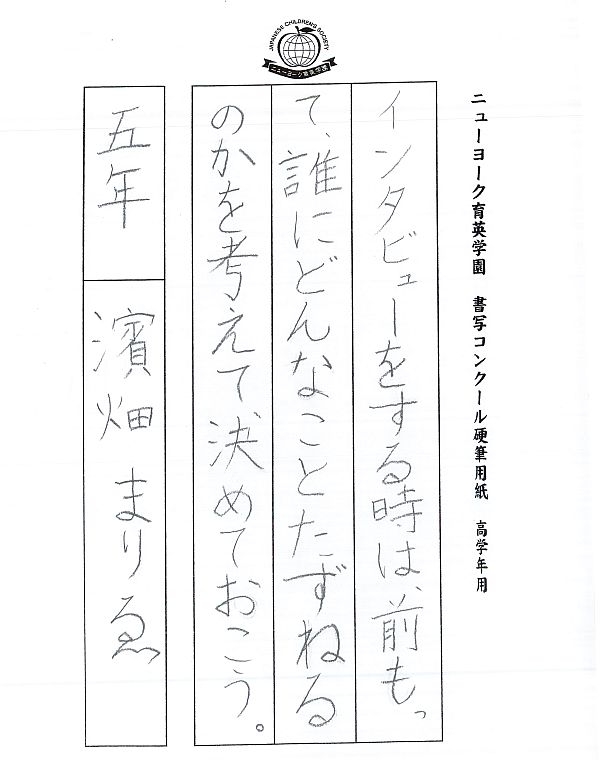 JAPANESE CHILDREN'S SOCIETY
ニューヨーク育英学園
ニューヨーク育英学園 書写コンクール硬筆用紙 高学年用
インタビューをする時は、前もっ
て、誰にどんなことたずねる
のかを考えて決めておこう。
五年 濱畑 まりゑ